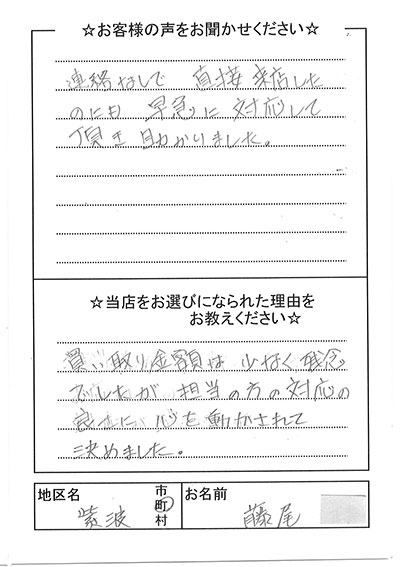 ☆お客様の声をお聞かせください☆
連絡なしで 直接来店した
のにも 早急に対応して
頂き助かりました。
☆当店をお選びになられた理由を
お教えください☆
買い取り金額は少なく残念
でしたが 担当の方の対応の
良さに心を動かされて
決めました。
地区名 市町村 お名前
紫波 藤尾